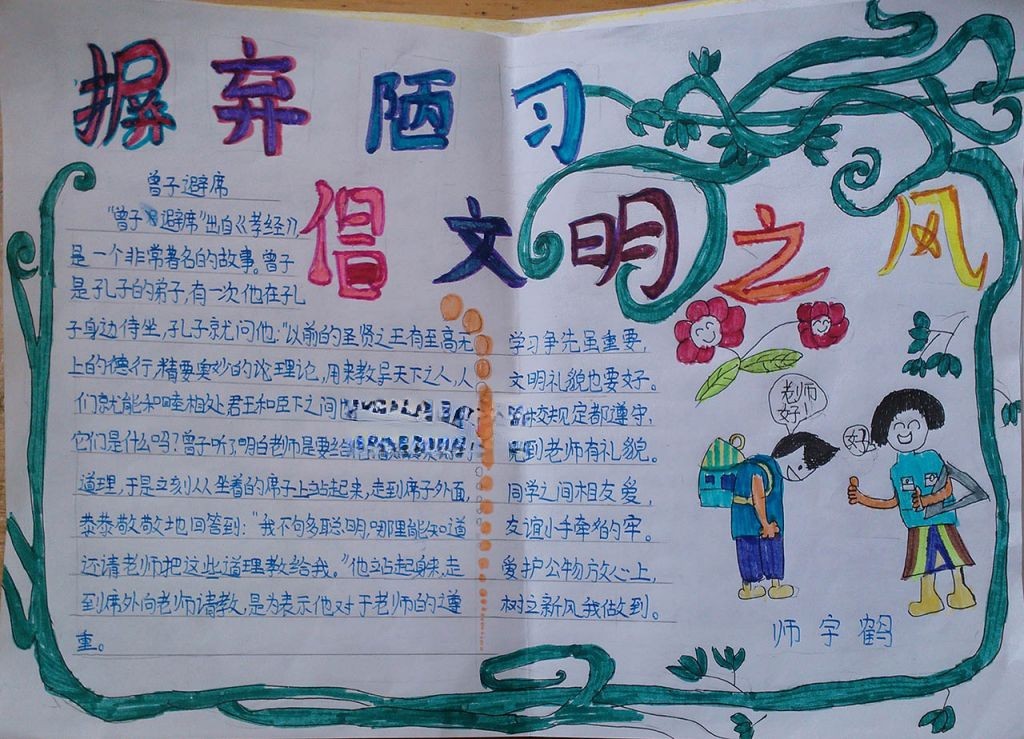 摒弃陋习
倡文明之风
曾子避席
“曾子避席”出自《孝经》,
是一个非常著名的故事。曾子
是孔子的弟子,有一次他在孔
子身边侍坐,孔子就问他:“以前的圣贤之王有至高无
上的德行,精要奥妙的论理论,用来教导天下之人,人
们就能和睦相处君王和臣下之间
它们是什么吗?曾子听了,明白老师是要给
道理,于是立刻从从坐着的席子上站起来,走到席子外面,
恭恭敬敬地回答到:“我不句多聪明,哪里能知道
还请老师把这些道理教给我。”他站起身来,走
到席外向老师请教,是为表示他对于老师的遵
重。
学习争先虽重要,
文明礼貌也要好。
校规定都遵守,
到老师有礼貌。
同学之间相友爱,
友谊小手牵的牢。
爱护公物放心上,
树立新风我做到。
老师
好!
好!
师宇鹤